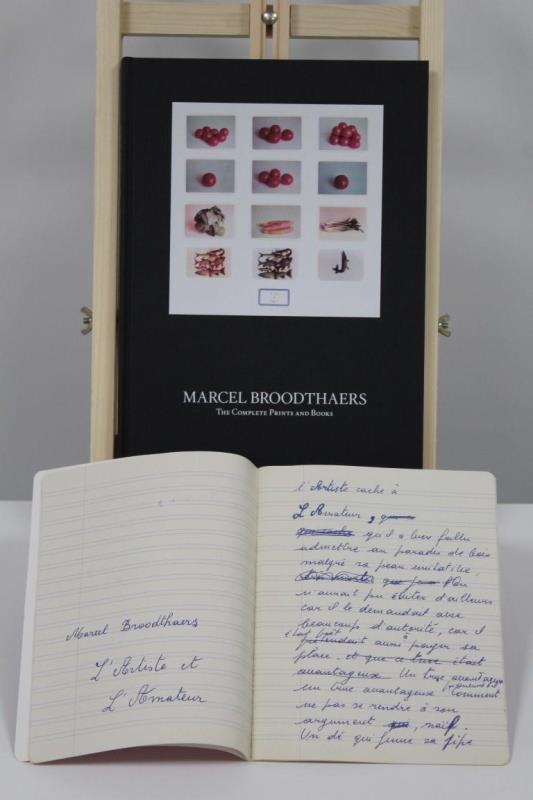 MARCEL BROODTHAERS
THE COMPLETE PRINTS AND BOOKS
Marcel Broodthaers
L'Artiste et
L'Amateur
l'Artiste cache à
L'Amateur,
qu'il a bien fallu
admettre au paradis de
malgré sa peau
On
n'aurait pu éviter d'ailleurs
car il le demandait avec
beaucoup d'autorité, car il
était prêt
prétendait aussi à payer sa
place. et que ce truc était
avantageux. Un truc avantageux
un truc avantageux comment
ne pas se rendre à son
argument
Un dé qui fume sa pipe